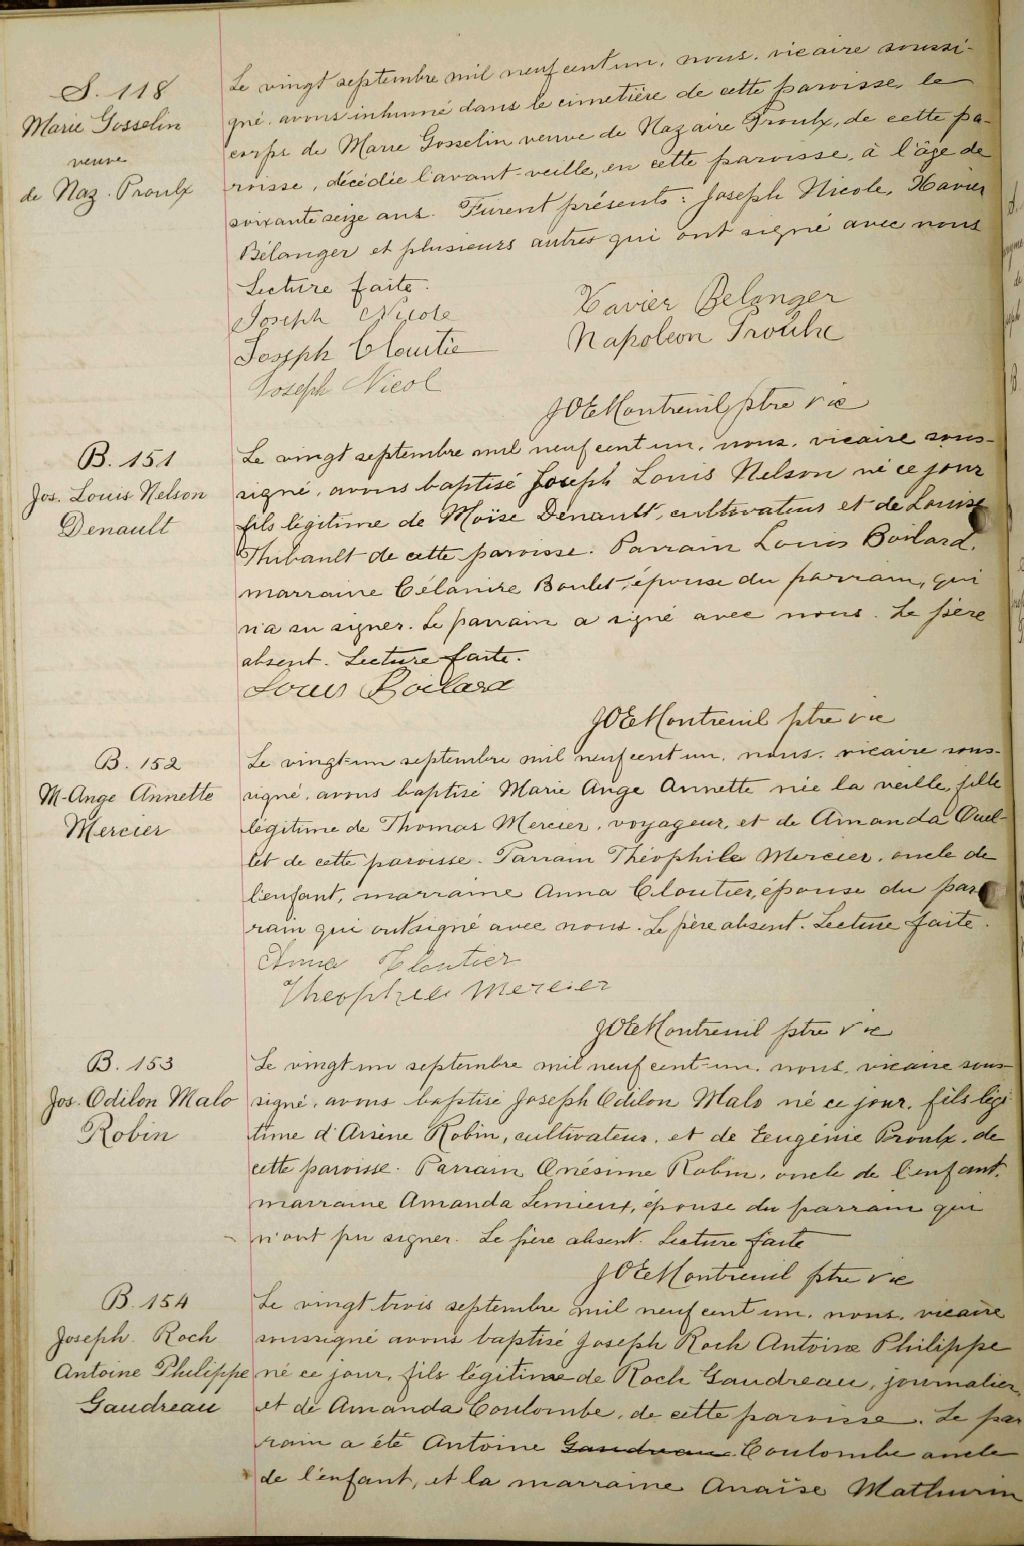 S. 118
Marie Gosselin
veuve
de Naz. Proulx
Le vingt septembre mil neuf cent un, nous, vicaire soussi-
gné, avons inhumé dans le cimetière de cette paroisse, le
corps de Marie Gosselin veuve de Nazaire Proulx, de cette pa-
roisse, décédée l'avant-veille, en cette paroisse, à l'âge de
soixante seize ans. Furent présents: Joseph Nicole, Xavier
Bélanger et plusieurs autres qui ont signé avec nous
Lecture faite.
Joseph Nicole
Xavier Belanger
Joseph Cloutie
Napoleon Proulx
Joseph Nicol
JOE Montreuil ptre vic
B. 151
Jos. Louis Nelson
Denault
Le vingt septembre mil neuf cent un, nous, vicaire sous-
signé, avons baptisé Joseph Louis Nelson né ce jour
fils légitime de Moïse Denault, cultivateur et de Louise
Thibault de cette paroisse. Parrain Louis Boilard,
marraine Célanire Boulet, épouse du parrain, qui
n'a su signer. Le parrain a signé avec nous. Le père
absent. Lecture faite.
Louis Boilard
JOE Montreuil ptre vic
B. 152
M-Ange Annette
Mercier
Le vingt-un septembre mil neuf cent un, nous, vicaire sous-
signé, avons baptisé Marie Ange Annette née la veille, fille
légitime de Thomas Mercier, voyageur, et de Amanda Ouel-
let de cette paroisse. Parrain Théophile Mercier, oncle de
l'enfant, marraine Anna Cloutier, épouse du par
rain qui ont signé avec nous. Le père absent. Lecture faite.
Anna Cloutier
Theophile Mercier
JOE Montreuil ptre vic
B. 153
Jos. Odilon Malo
Robin
Le vingt un septembre mil neuf cent-un, nous, vicaire sous-
signé, avons baptisé Joseph Odilon Malo né ce jour, fils légi-
time d'Arsène Robin, cultivateur, et de Eugénie Proulx, de
cette paroisse. Parrain Onésime Robin, oncle de l'enfant,
marraine Amanda Lemieux, épouse du parrain qui
n'ont pu signer. Le père absent. Lecture faite
JOE Montreuil ptre vic
B. 154
Joseph Roch
Antoine Philippe
Gaudreau
Le vingt trois septembre mil neuf cent un, nous, vicaire
soussigné avons baptisé Joseph Roch Antoine Philippe
né ce jour, fils légitime de Roch Gaudreau, journalier,
et de Amanda Coulombe, de cette paroisse. Le par
rain a été Antoine Gaudreau Coulombe oncle
de l'enfant, et la marraine Anaïse Mathurin